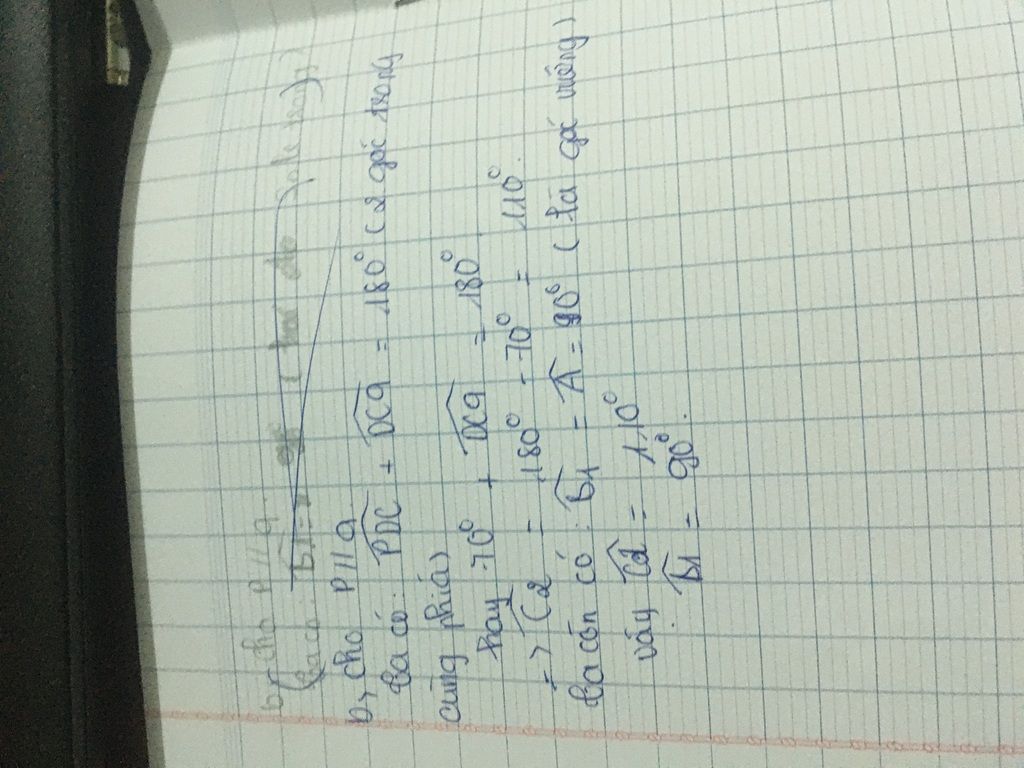 b, cho p // q
(ta có: B1 = so le trong)
b, cho p // q
ta có: PDC + DCq = 180° (2 góc trong
cùng phía)
hay 70° + DCq = 180°
=> C2 = 180° - 70° = 110°.
ta còn có: B1 = A = 90° (là góc vuông)
vậy C2 = 110°
B1 = 90°.